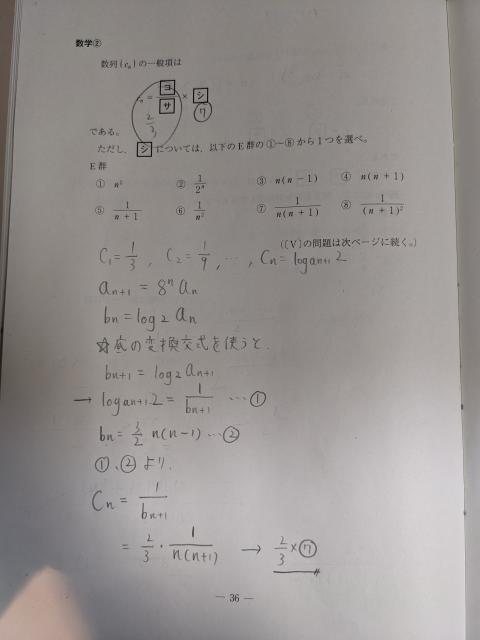 数学②
数列{cₙ}の一般項は
cₙ = コ/サ × シ
2/3 ⑦
である。
ただし、シについては、以下のE群の①~⑧から1つを選べ。
E群
① n² ② 1/2ⁿ ③ n(n-1) ④ n(n+1)
⑤ 1/(n+1) ⑥ 1/n² ⑦ 1/(n(n+1)) ⑧ 1/(n+1)²
([V]の問題は次ページに続く。)
C₁ = 1/3 , C₂ = 1/9 , …, Cₙ = log aₙ₊₁ 2
aₙ₊₁ = 8ⁿ aₙ
bₙ = log₂ aₙ
☆底の変換公式を使うと、
bₙ₊₁ = log₂ aₙ₊₁
→ log aₙ₊₁ 2 = 1/bₙ₊₁ …①
bₙ = 3/2 n(n-1) …②
①、②より、
Cₙ = 1/bₙ₊₁
= 2/3 · 1/(n(n+1)) → 2/3 × ⑦
— 36 —